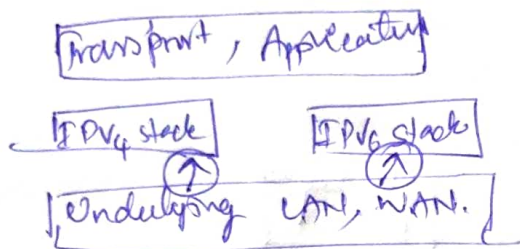 Transport, Application
IPV4 stack IPV6 stack
Underlying LAN, WAN.